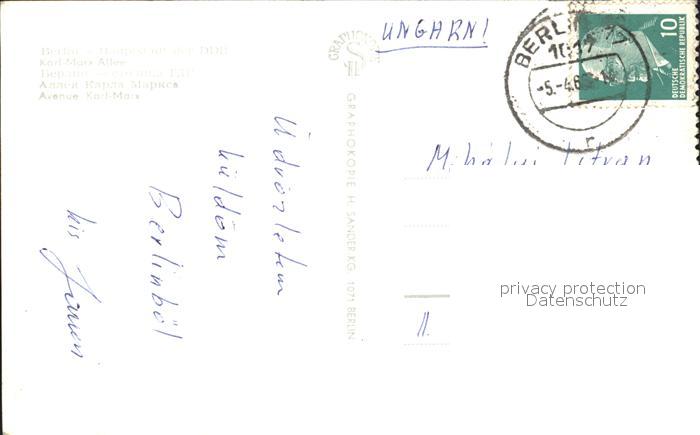 Berlin - Hauptstadt der DDR
Karl-Marx-Allee
Берлин - столица ГДР
Аллея Карла Маркса
Avenue Karl-Marx
GRAPHOKOPIE H. SANDER KG 1071 BERLIN
UNGARN!
BERLIN 17
1017
-5.-4.6
r
10
DEUTSCHE
DEMOKRATISCHE REPUBLIK
Üdvözletem
küldöm
Berlinből
kis
II.
privacy protection
Datenschutz